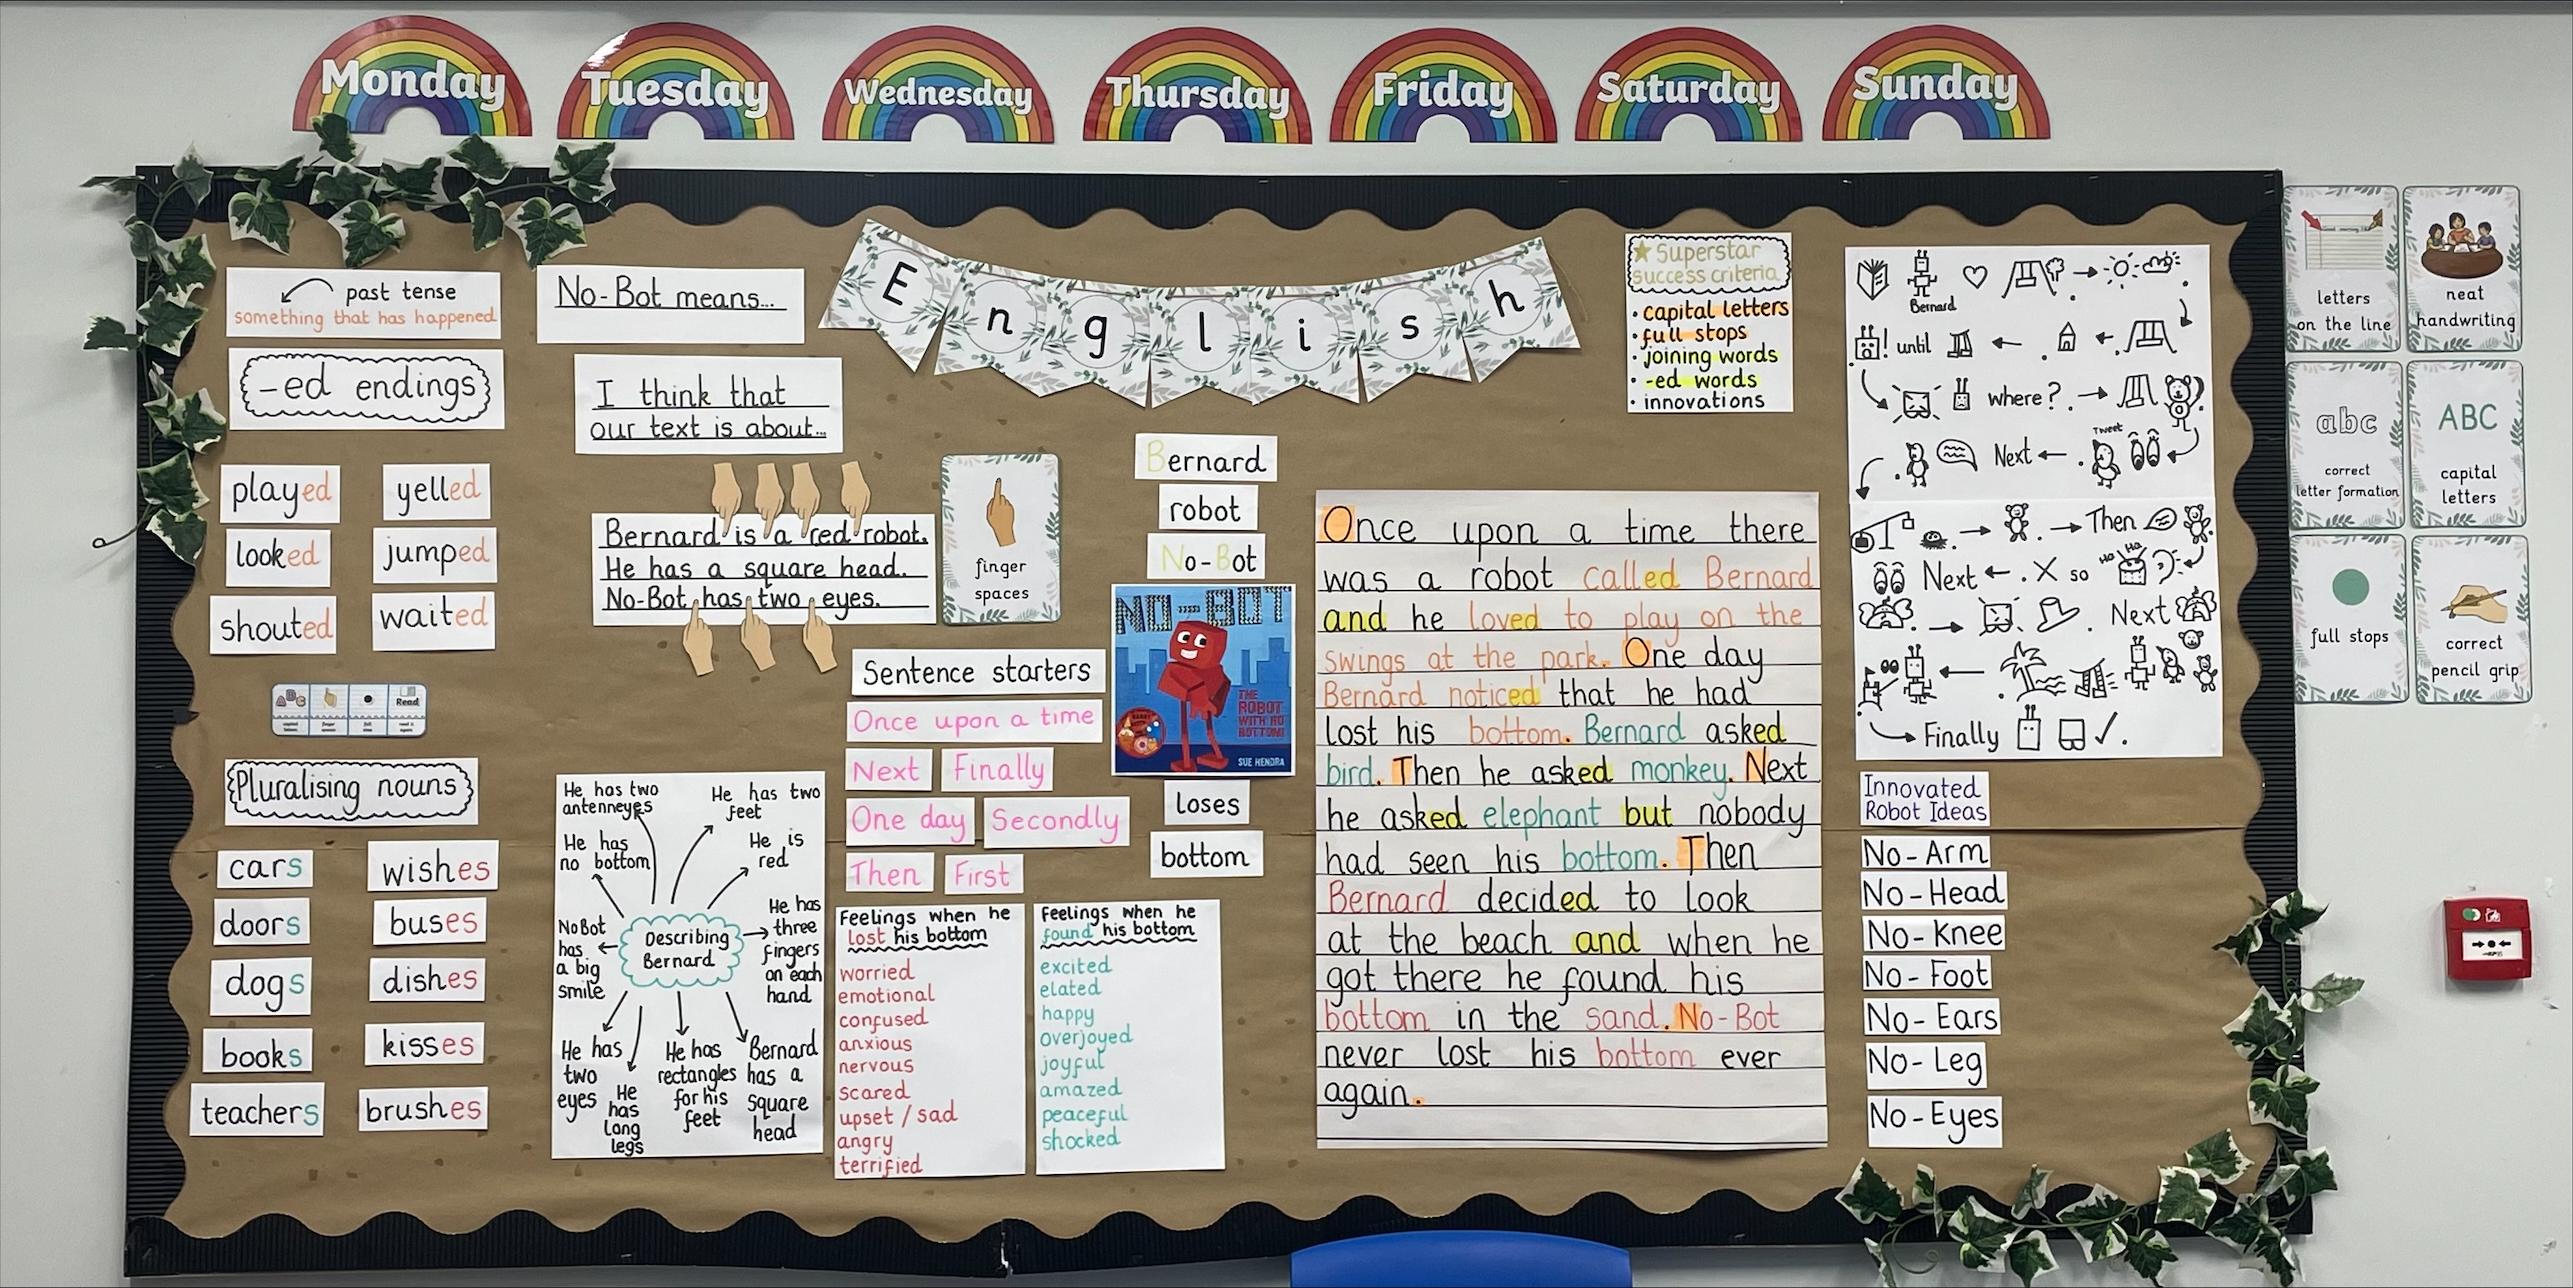 Monday
Tuesday
Wednesday
Thursday
Friday
Saturday
Sunday
past tense
something that has happened
-ed endings
played
yelled
looked
jumped
shouted
waited
Read
Pluralising nouns
cars
wishes
doors
buses
dogs
dishes
books
kisses
teachers
brushes
No-Bot means...
I think that
our text is about...
Bernard is a red robot.
He has a square head.
No-Bot has two eyes.
finger
spaces
English
He has two
antenneyes
He has two
feet
He has
no bottom
He is
red
NoBot
has
a big
smile
Describing
Bernard
He has
three
fingers
on each
hand
He has
two
eyes
He
has
long
legs
He has
rectangles
for his
feet
Bernard
has a
square
head
Sentence starters
Once upon a time
Next
Finally
One day
Secondly
Then
First
Feelings when he
lost his bottom
worried
emotional
confused
anxious
nervous
scared
upset / sad
angry
terrified
Feelings when he
found his bottom
excited
elated
happy
overjoyed
joyful
amazed
peaceful
shocked
Bernard
robot
No-Bot
NO-BOT
THE
ROBOT
WITH NO
BOTTOM!
SUE HENDRA
loses
bottom
Superstar
success criteria
• capital letters
• full stops
• joining words
• -ed words
• innovations
Once upon a time there
was a robot called Bernard
and he loved to play on the
swings at the park. One day
Bernard noticed that he had
lost his bottom. Bernard asked
bird. Then he asked monkey. Next
he asked elephant but nobody
had seen his bottom. Then
Bernard decided to look
at the beach and when he
got there he found his
bottom in the sand. No-Bot
never lost his bottom ever
again.
Bernard
until
where?
Tweet
Next
Then
Ha Ha
Next . X so
Next
Finally
Innovated
Robot Ideas
No-Arm
No-Head
No-Knee
No-Foot
No-Ears
No-Leg
No-Eyes
letters
on the line
neat
handwriting
abc
correct
letter formation
ABC
capital
letters
full stops
correct
pencil grip